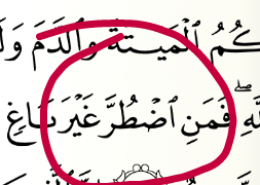 كُمُ ٱلْمَيْتَةَ وَٱلدَّمَ وَلَ
لَّهِ ۖ فَمَنِ ٱضْطُرَّ غَيْرَ بَاغٍ